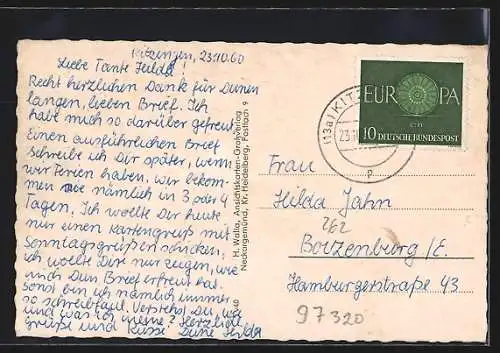 Kitzingen, 23.10.60
Liebe Tante Hilda!
Recht herzlichen Dank für Deinen
langen, lieben Brief. Ich
hab mich so darüber gefreut
Einen ausführlichen Brief
schreibe ich Dir später, wenn
wir Ferien haben, wir bekom-
men sie nämlich in 3 oder 4
Tagen. Ich wollte Dir heute
nur einen Kartengruß mit
Sonntagsgrüßen schicken,
ich wollte Dir nur zeigen, wie
mich Dein Brief erfreut hat.
Sonst bin ich nämlich immer
so schreibfaul. Verstehst Du wie
und was ich meine? Herzliche
Grüße und Küsse Deine Hilda
H. Walla, Ansichtskarten-Großverlag
Neckargemünd, Kr. Heidelberg, Postfach 9
(13a) KITZ
23.10
P
EUROPA
CEPT
10 DEUTSCHE BUNDESPOST
Frau
Hilda Jahn
262
Boizenburg/E.
Hamburgerstraße 43
97320